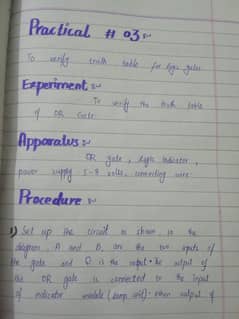 Practical # 03 :-
To verify truth table for logic gates
Experiment :-
To verify the truth table
of OR Gate
Apparatus :-
OR gate, logic Indicator,
power supply 5-8 volts, connecting wire
Procedure :-
1) Set up the circuit is shown in the
diagram. A and B, are the two inputs of
the gate and Q is the output. the output of
the OR gate is connected to the input
of indicator module (lamp unit). when output of